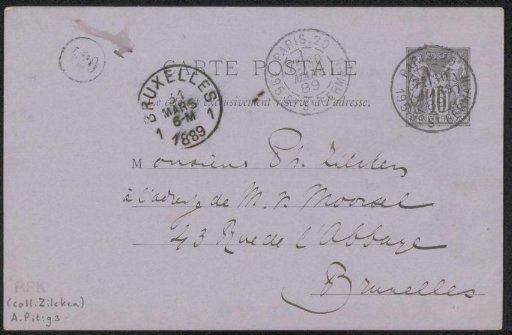 120
CARTE POSTALE
Ce côté est exclusivement réservé à l'adresse.
PARIS_20
MARS
89
BRUXELLES
31
MARS
6-M
1889
1 1
Monsieur Ph. Zilcken
à l'adresse de M. v. Moorsel
43 Rue de l'Abbaye
Bruxelles
RPK
(coll. Zilcken)
A. Pit: 93